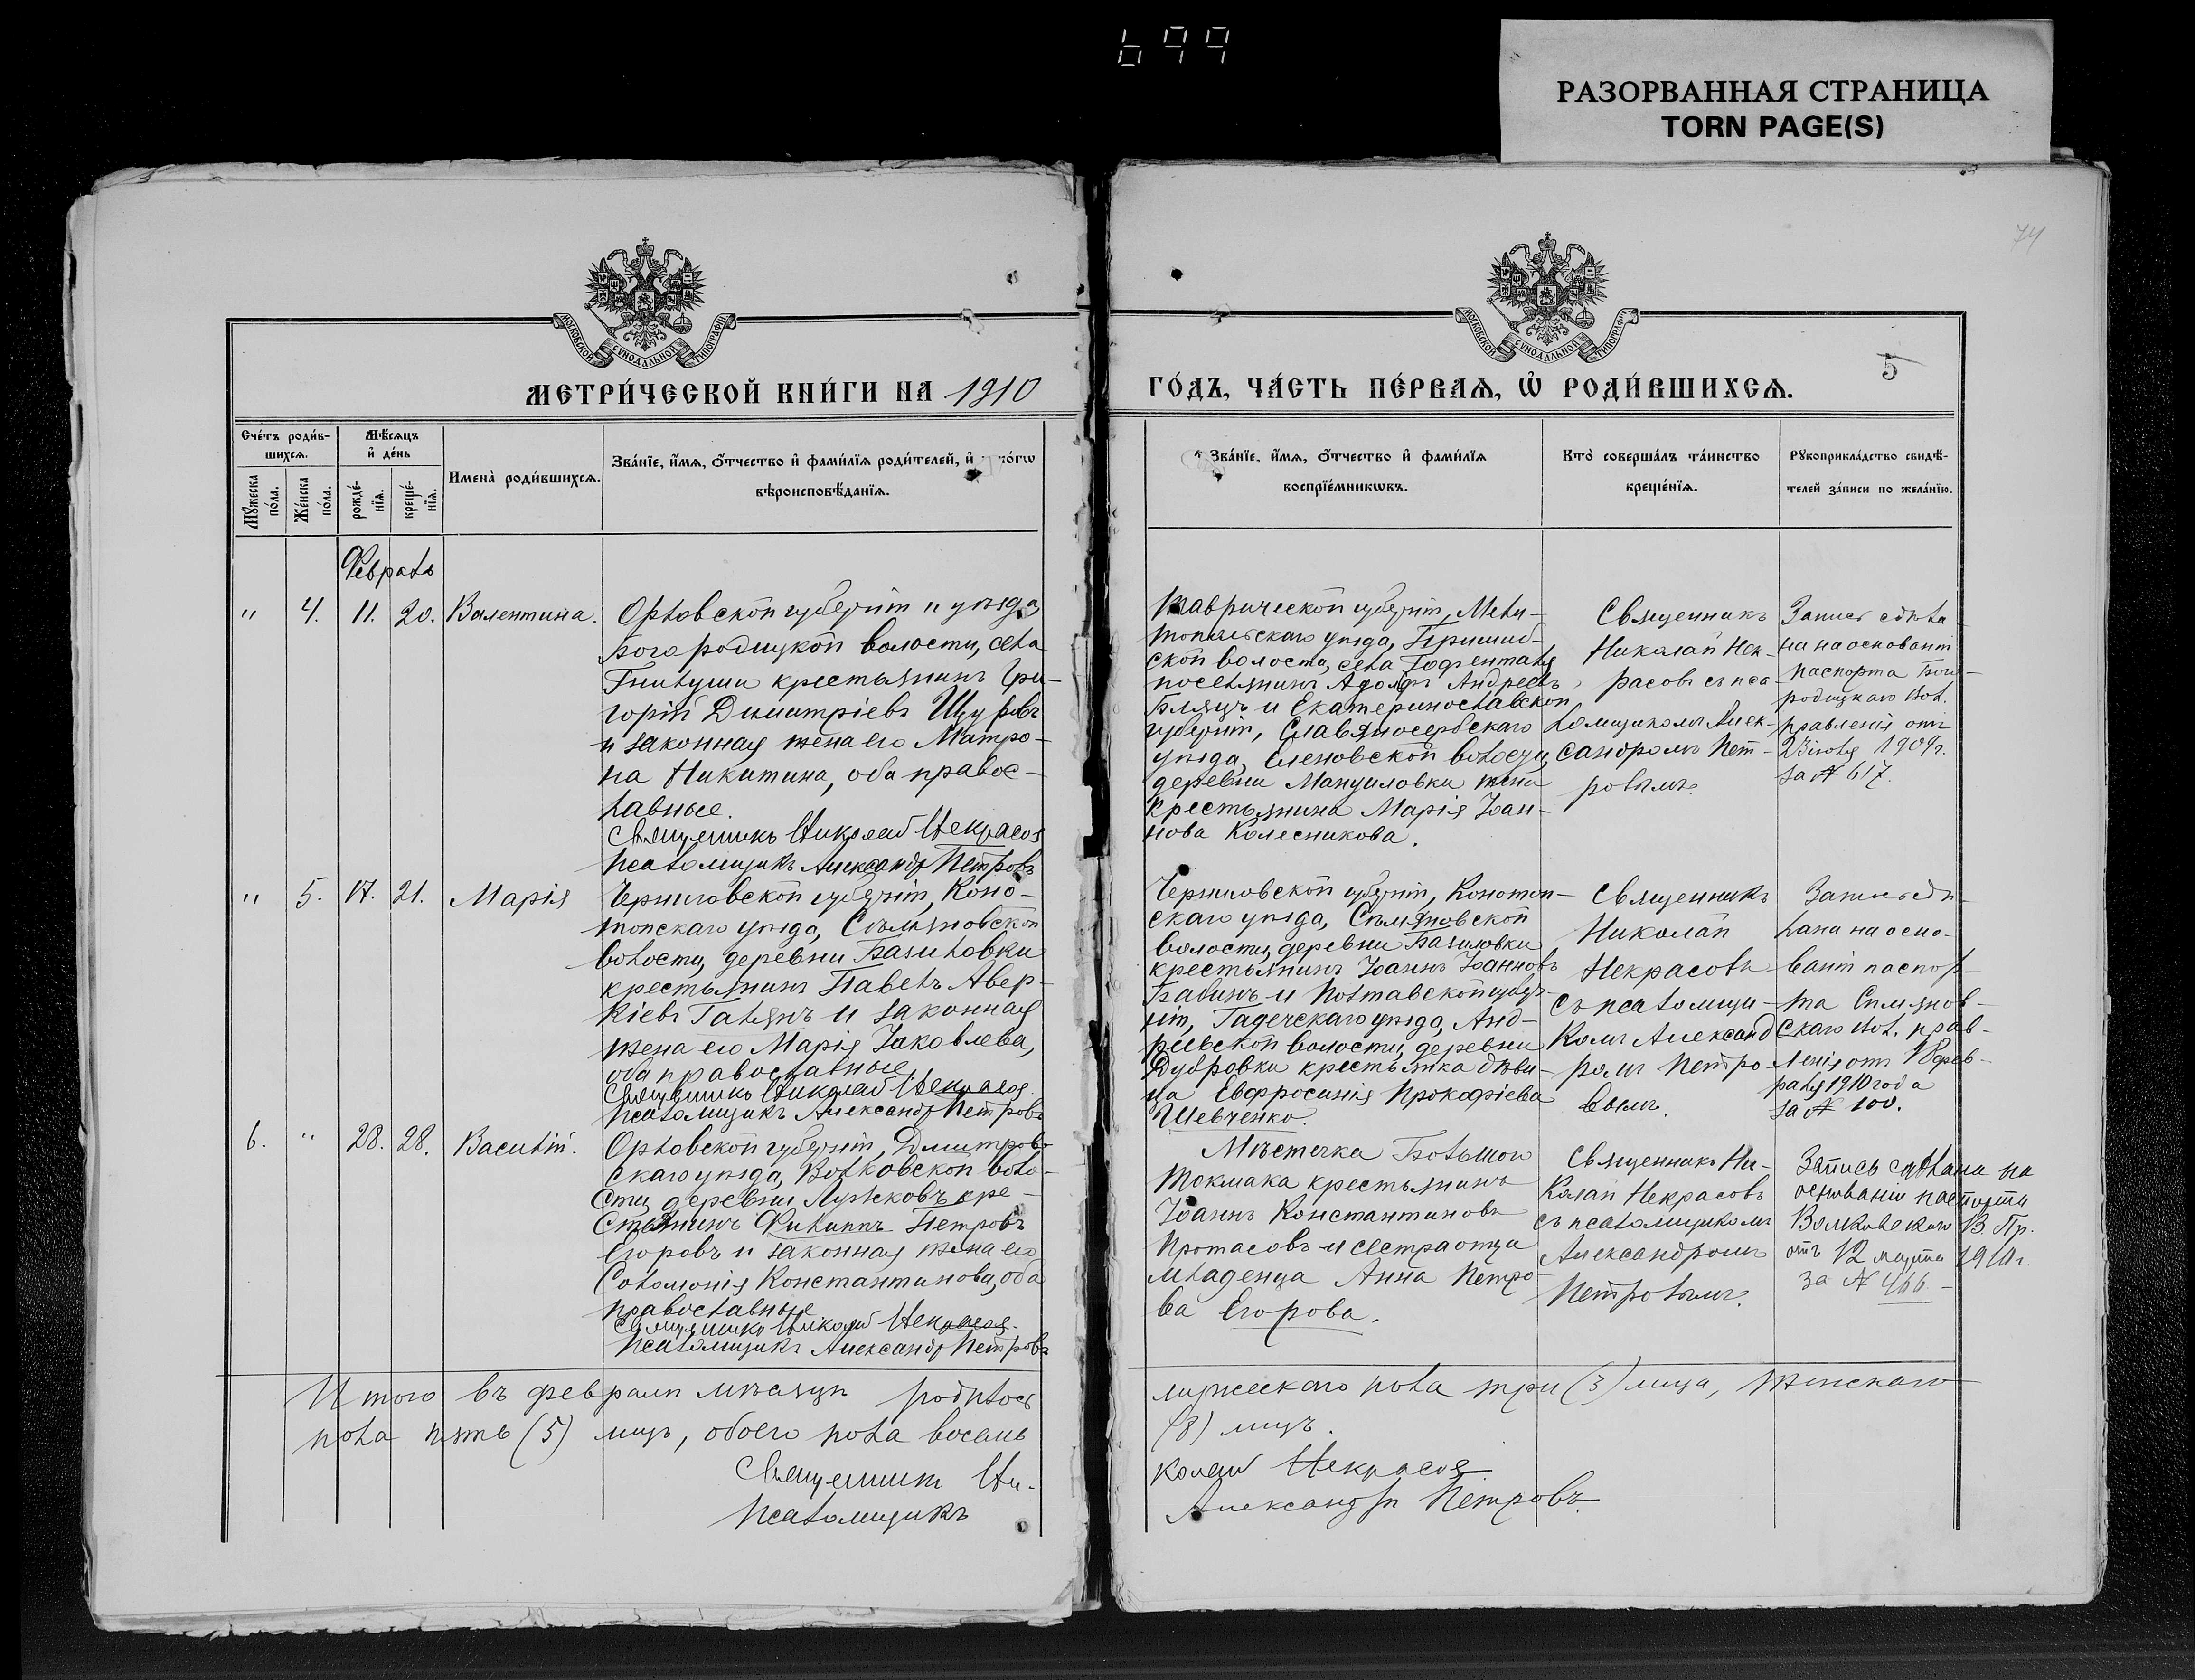 699
РАЗОРВАННАЯ СТРАНИЦА
TORN PAGE(S)
74
МОСКОВСКОЙ СѴНОДАЛЬНОЙ ТИПОГРАФІИ
МОСКОВСКОЙ СѴНОДАЛЬНОЙ ТИПОГРАФІИ
5
МЕТРИ́ЧЕСКОЙ КНИ́ГИ НА 1910
ГО́ДЪ, ЧА́СТЬ ПЕ́РВАЯ, Ѡ҆ РОДИ́ВШИХСЯ.
Сче́тъ роди́в-
шихся.
Мꙋ́жеска
по́ла.
Же́нска
по́ла.
Мѣ́сяцъ
и҆ де́нь
рожде́-
нїя.
креще́-
нїя.
Имена̀ роди́вшихся.
Зва́нїе, и҆́мя, ѻ҆́тчество и҆ фами́лїя роди́телей, и҆
вѣроисповѣ́данїя.
Зва́нїе, и҆́мя, ѻ҆́тчество и҆ фами́лїя
воспрїе́мникѡвъ.
Кто̀ соверша́лъ та́инство
креще́нїя.
Рꙋкоприкла́дство свидѣ́-
телей за́писи по жела́нїю.
Февраль
" 4. 11. 20. Валентина.
Орловской губерніи и уѣзда,
Богородицкой волости, села
Гнилуши крестьянинъ Гри-
горій Димитріевъ Щуровъ
и законная жена его Матро-
на Никитина, оба правос-
лавные.
Священникъ Николай Некрасов
Псаломщикъ Александр Петровъ
Таврической губерніи, Мели-
топольскаго уѣзда, Пришиб-
ской волости, села Гофенталя
поселянинъ Адольфъ Андреевъ
Бляцъ и Екатеринославской
губерніи, Славяносербскаго
уѣзда, Еленовской волости,
деревни Мануиловки жена
крестьянина Марія Іоан-
нова Колесникова.
Священникъ
Николай Нек-
расовъ съ пса-
ломщикомъ Алек-
сандромъ Пет-
ровымъ.
Запись сдѣла-
на на основаніи
паспорта Бого-
родицкаго вол.
правленія отъ
23 іюля 1909 г.
за № 617.
" 5. 17. 21. Марія
Черниговской губерніи, Коно-
топскаго уѣзда, Смѣляновской
волости, деревни Базиловки
крестьянинъ Павелъ Авер-
кіевъ Галянъ и законная
жена его Марія Іаковлева,
оба православные
Священникъ Николай Некрасов.
Псаломщикъ Александр Петровъ
Черниговской губерніи, Конотоп-
скаго уѣзда, Смѣляновской
волости, деревни Базиловки
крестьянинъ Іоаннъ Іоанновъ
Бабинъ и Полтавской губер-
ніи, Гадечскаго уѣзда, Анд-
реевской волости, деревни
Дубровки крестьянка дѣви-
ца Евфросинія Прокофіева
Шевченко.
Священникъ
Николай
Некрасовъ
съ псаломщи-
комъ Александ
ромъ Петро
вымъ.
Запись сдѣ-
лана на осно-
ваніи паспор-
та Смѣлянов-
скаго вол. прав-
ленія отъ 18 фев-
раля 1910 года
за № 100.
6. " 28. 28. Василій.
Орловской губерніи, Дмитров-
скаго уѣзда, Волковской воло-
сти, деревни Лужковъ кре-
стьянинъ Филиппъ Петровъ
Егоровъ и законная жена его
Соломонія Константинова, оба
православные
Священникъ Николай Некрасов.
Псаломщикъ Александр Петровъ
Мѣстечка Большого
Токмака крестьянинъ
Іоаннъ Константиновъ
Протасовъ и сестра отца
младенца Анна Петро-
ва Егорова.
Священникъ Ни-
колай Некрасовъ
съ псаломщикомъ
Александромъ
Петровымъ.
Запись сдѣлана на
основаніи паспорта
Волковскаго В. Пр.
отъ 12 марта 1910 г.
за № 466.
Итого въ февралѣ мѣсяцѣ родилось
мужескаго пола три (3) лица, женскаго
пола пять (5) лицъ, обоего пола восемь
(8) лицъ.
Священникъ Ни-
колай Некрасов
Псаломщикъ
Александръ Петровъ.